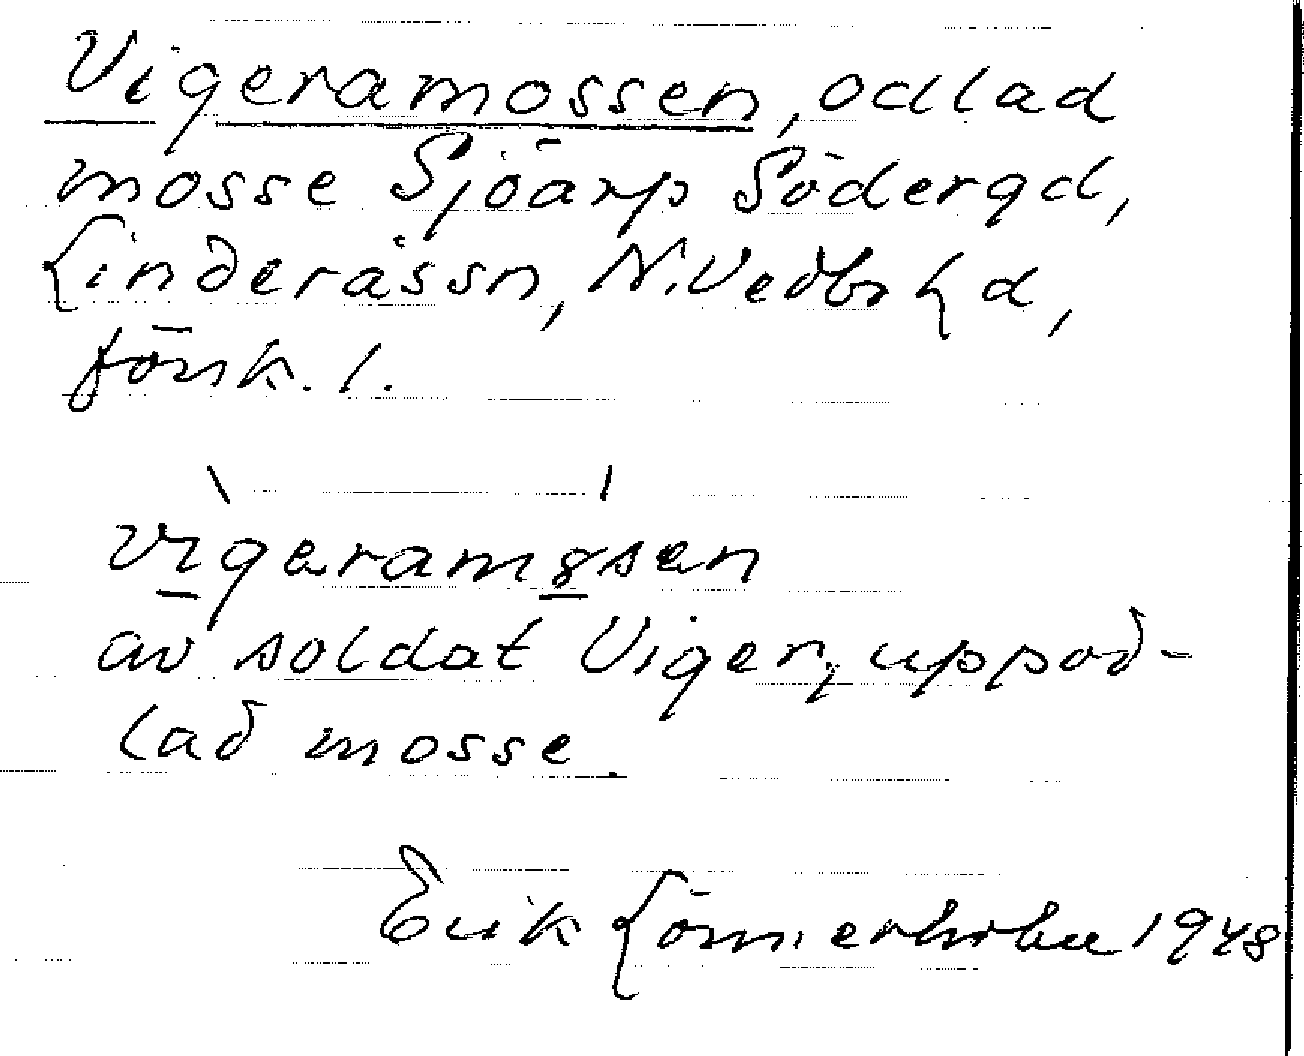 Vigeramossen, odlad
mosse Sjöarp Södergd,
Linderåssn, N. Vedbo hd,
Jönk. l.
vigaramɞsan
av soldat Viger, uppod-
lad mosse.
Erik 1948